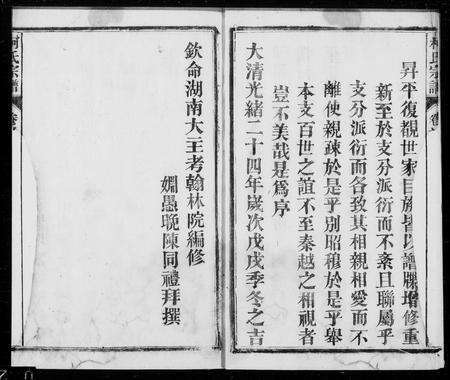 昇平復覩世家巨族皆以譜牒增修重
新至於支分派衍而不紊且聯屬乎
支分派衍而各致其相親相愛而不
離使親疎於是乎別昭穆於是乎舉
本支百世之誼不至秦越之相視者
豈不美哉是為序
大清光緒二十四年歲次戊戌季冬之吉
欽命湖南大主考翰林院編修
姻愚晚陳同禮拜撰
柯氏宗譜